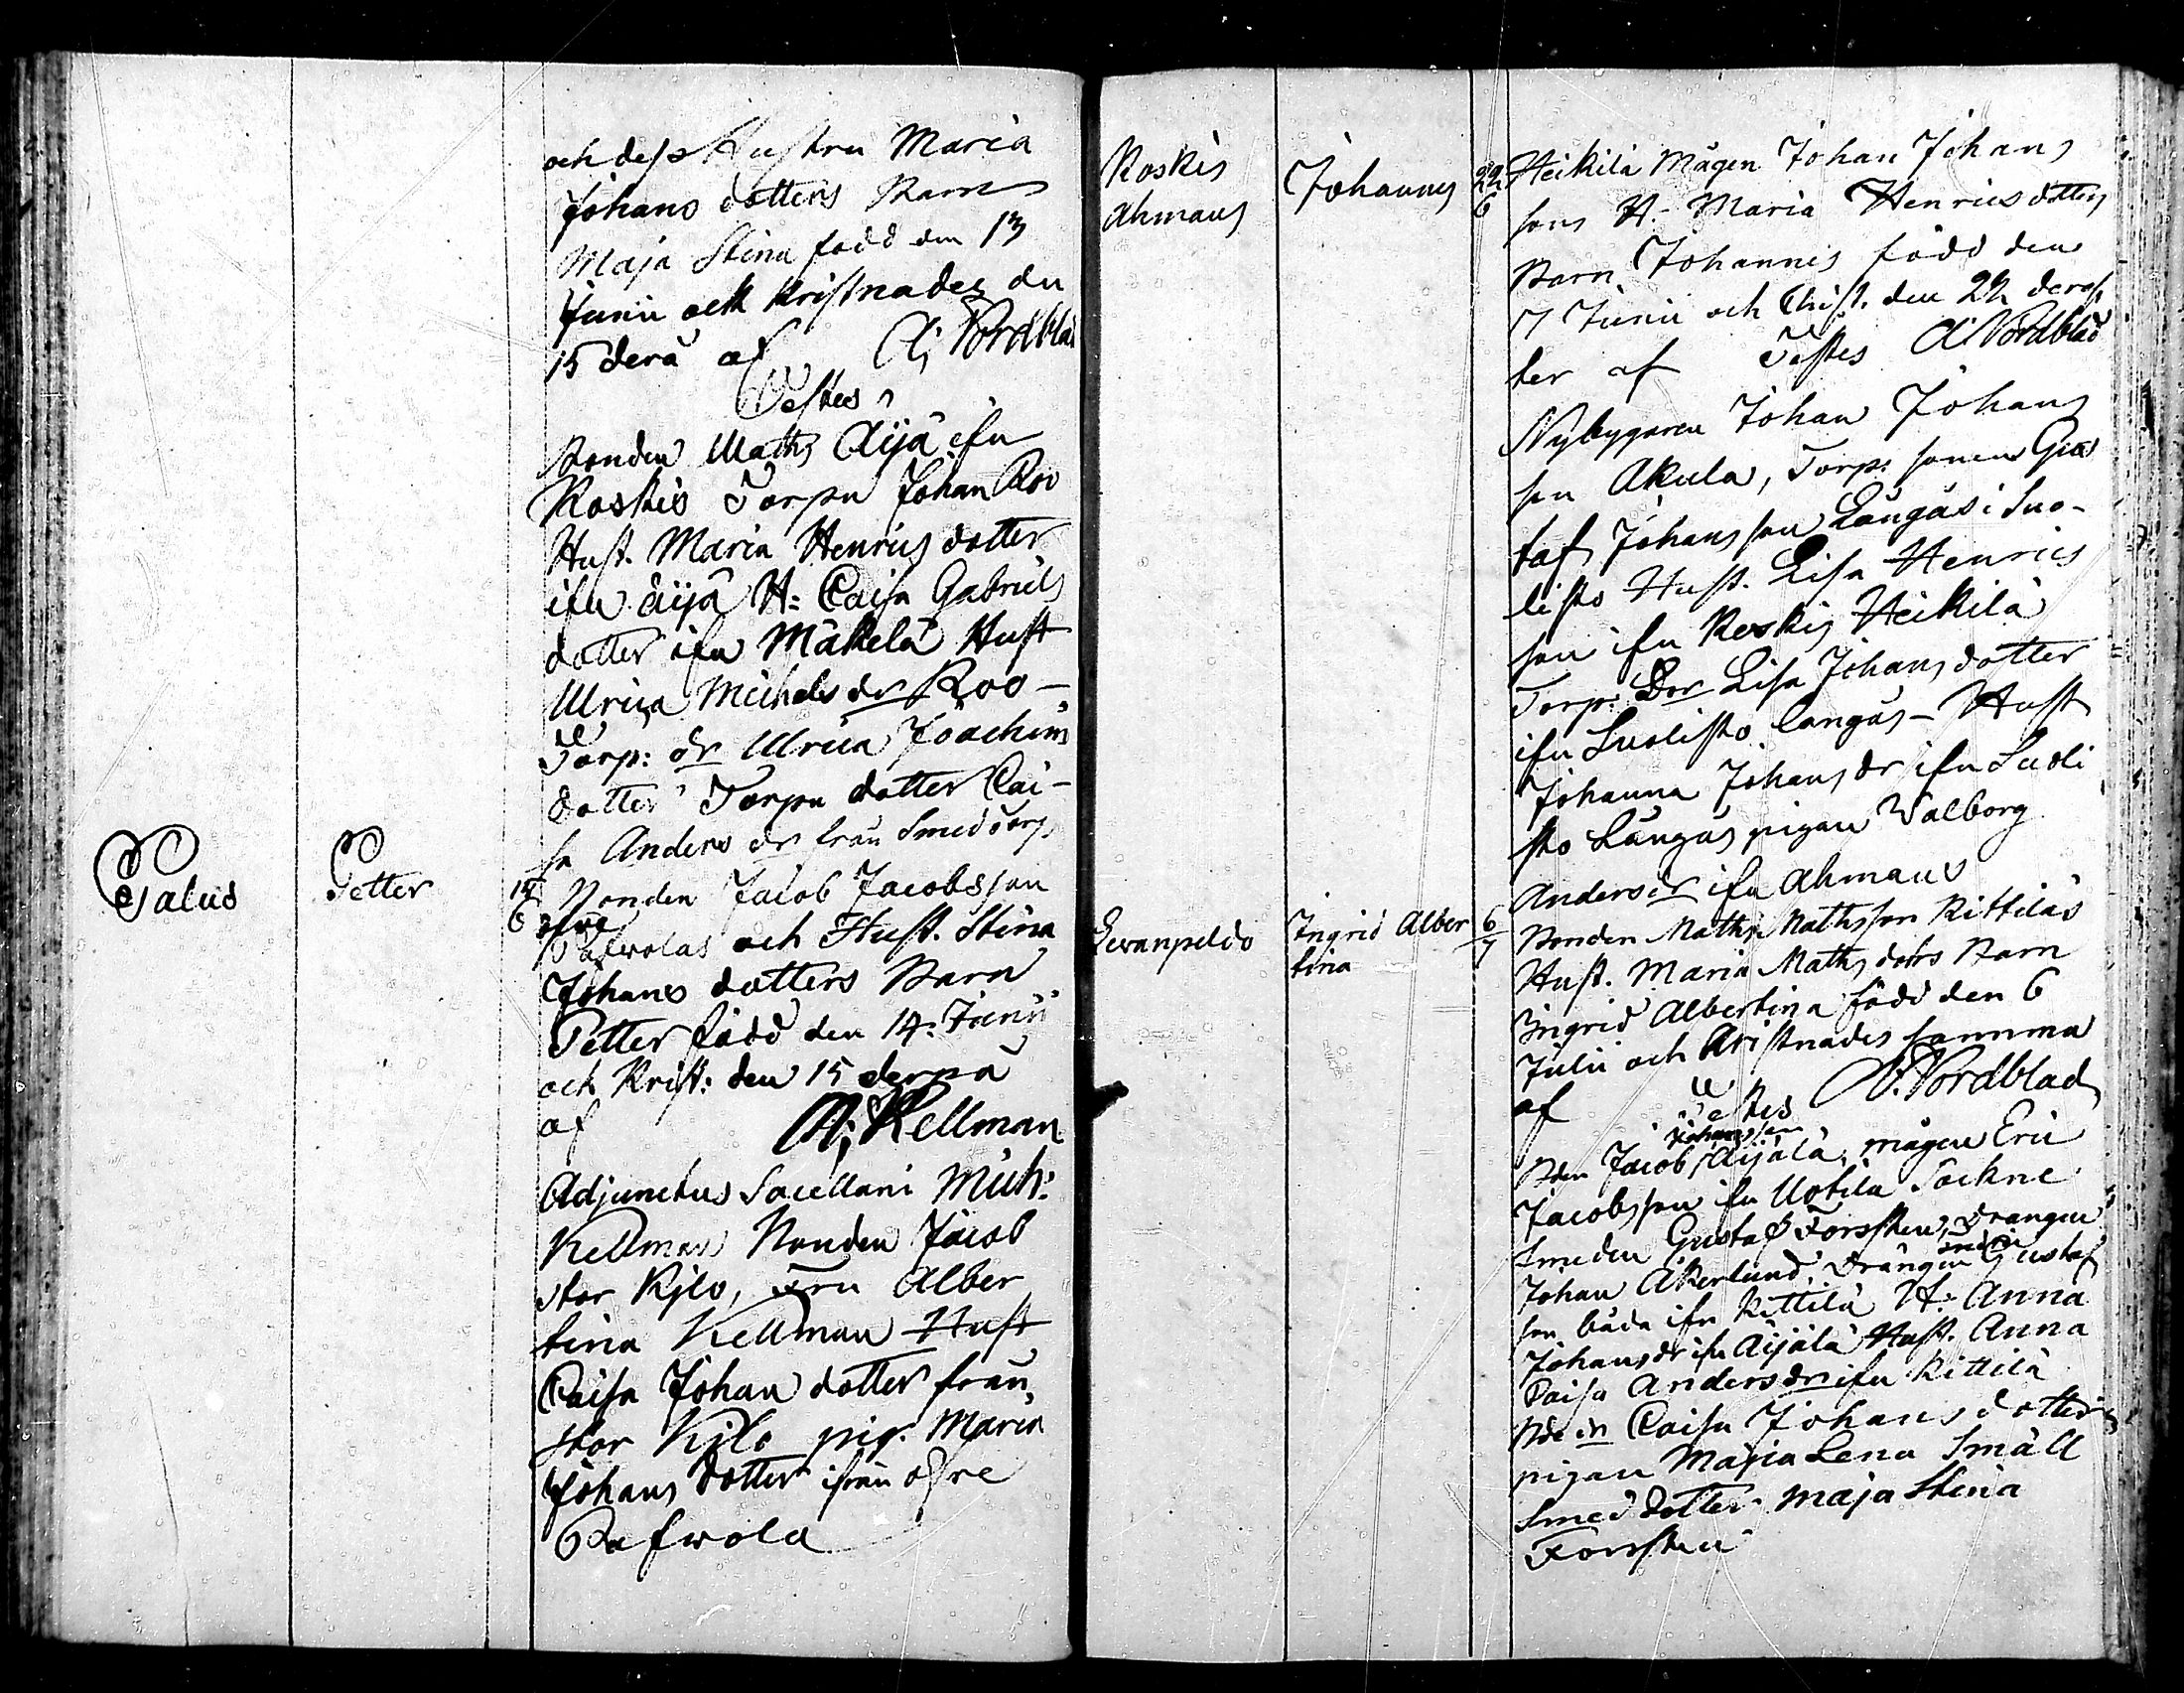 och dess Hustru Maria
Johans dotters Barn
Maja Stina född den 13
Junii och Kristnades den
15 derå af A; Nordblad
Testes
Bonden Maths Äijä ifrn
Koskis Torpn Johan Roo
Hust. Maria Henrics dotter
ifrn äijä H: Caisa Gabriels
dotter ifrn Mäkelä Hust
Ulrica Michels dr Roo-
Torp: dr Ulrica Joachims
dotter Torpn dotter Cai-
sa Anders dr från Smedtorp
Palus
Petter
14
6
Bonden Jacob Jacobsson
öfre
Pafwolas och Hust. Stina
Johans dotters Barn
Petter född den 14: Junii
och Krist: den 15 derpå
af A; Kellman
Adjunctus Sacellani Mich:
Kellman Bonden Jacob
stor Kylo, Fru Alber
tina Kellman Hust
Caisa Johan dotter från
stor Kylo pig. Maria
Johans dotter ifrån öfre
Pafwola
Koskis
Ahmaus
Johannes
22
6
Heikilä Mågen Johan Johans
sons H. Maria Henrics dotters
Barn Johannes född den
17 Junii och Christ. den 22 deref
ter af Testes A. Nordblad
Nybyggaren Johan Johans
son Akula, Torp. sonen Gus
taf Johansson Långås i Suo-
listo Hust. Lisa Henrics
son ifrn Koskis Heikilä
Torp: Dor Lisa Johans dotter
ifrn Suolisto långås - Hust
Johanna Johans dr ifrn Suoli
sto Långås pigan Walborg
Anders dr ifrn Ahmaus
Lewanpeldo
Ingrid Alber
tina
6
7
Bonden Maths Mathsson Kittiläs
Hust. Maria Maths dotrs Barn
Ingrid Albertina född den 6
Julii och Kristnades samma
af Testes A. Nordblad
Johansson
Bden Jacob Äijälä, mågen Eric
Jacobsson ifrn Uotila Sockne
smeden Gustaf Forssten, Drängen
Johan Åkerlund, Drängen Gustaf
son båda ifrn Kittilä H: Anna
Johans dr ifrn Äijälä Hust. Anna
Caisa Anders dr ifrn Kittilä
Caisa Johans dotter
pigan Maria Lena Småll
Smed dotter. Maja Stina
Forssten